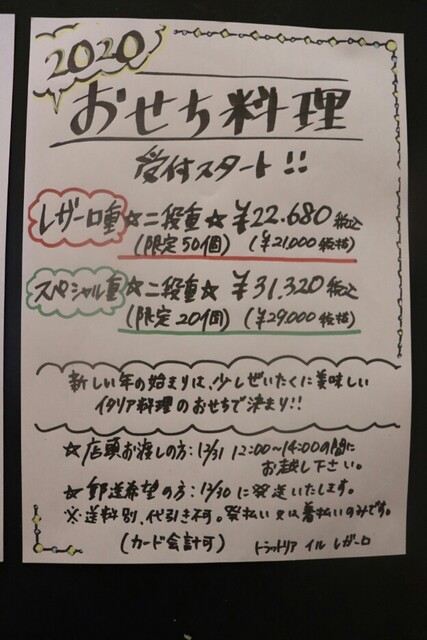 2020
おせち料理
受付スタート!!
レガーロ重 ☆二段重☆ ¥22.680 税込
(限定50個) (¥21,000 税抜)
スペシャル重 ☆二段重☆ ¥31,320 税込
(限定20個) (¥29,000 税抜)
新しい年の始まりは、少しぜいたくに美味しい
イタリア料理のおせちで決まり!!
☆店頭お渡しの方:12/31 12:00~14:00の間に
お越し下さい。
☆郵送希望の方:12/30に発送いたします。
※送料別、代引き不可。発払い又は着払いのみです。
(カード会計可)
トラットリア イル レガーロ